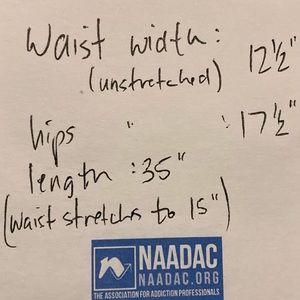 Waist width:
(unstretched) 12½"
hips " : 17½"
length : 35"
(waist stretchs to 15")
NAADAC
NAADAC.ORG
THE ASSOCIATION FOR ADDICTION PROFESSIONALS